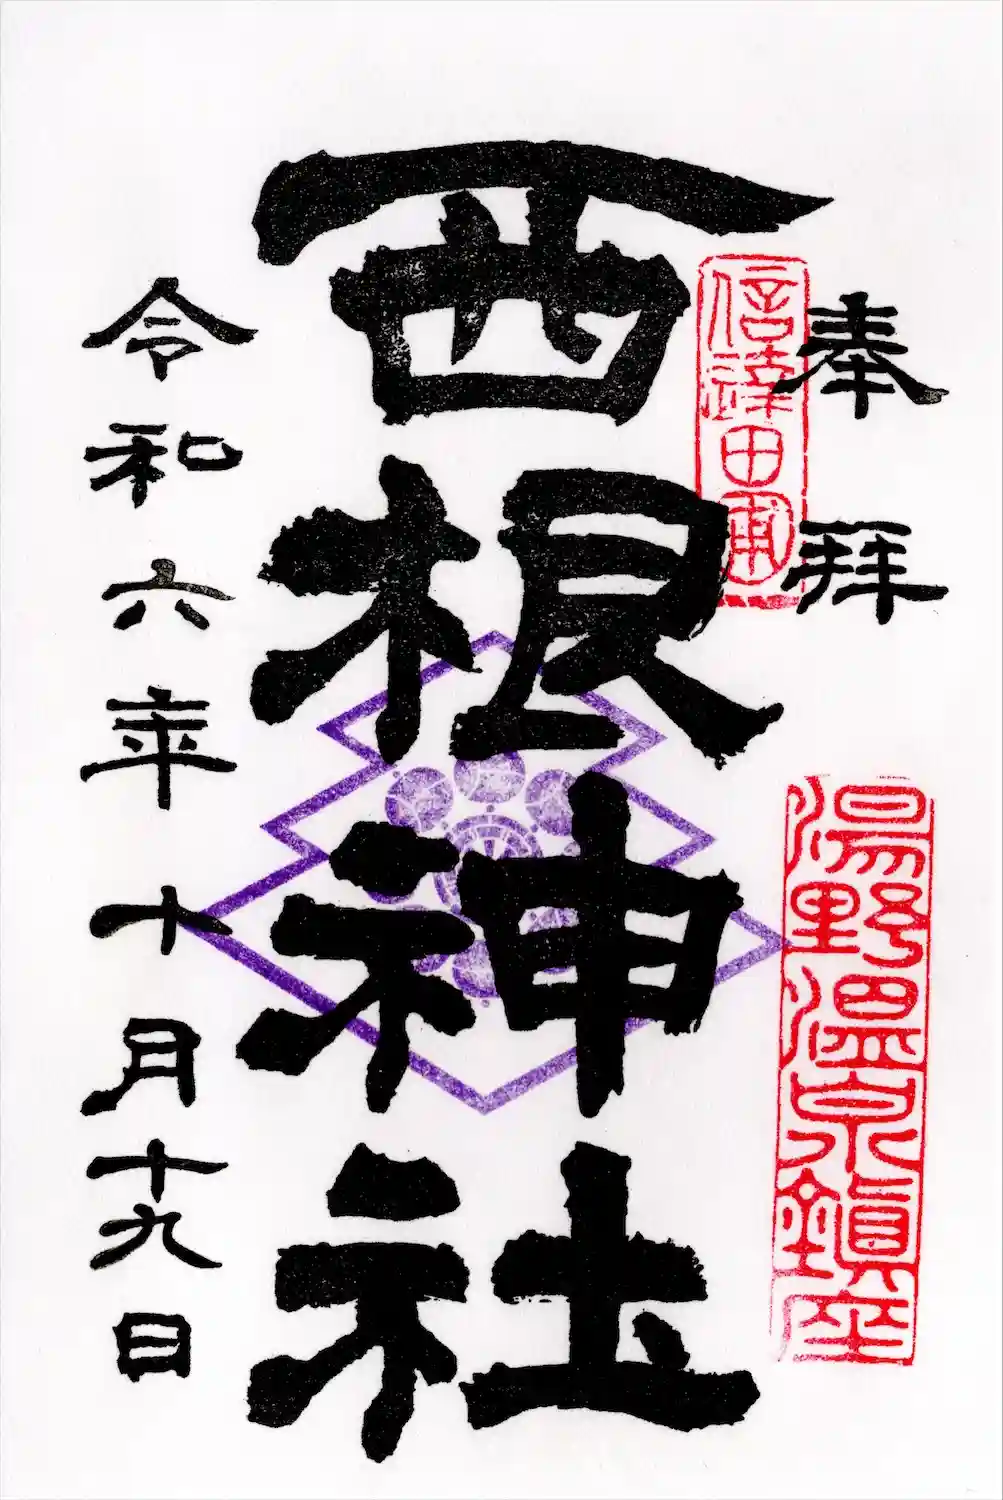 奉拝
信達田 
湯野温泉鎮座
西根神社
令和六年十月十九日